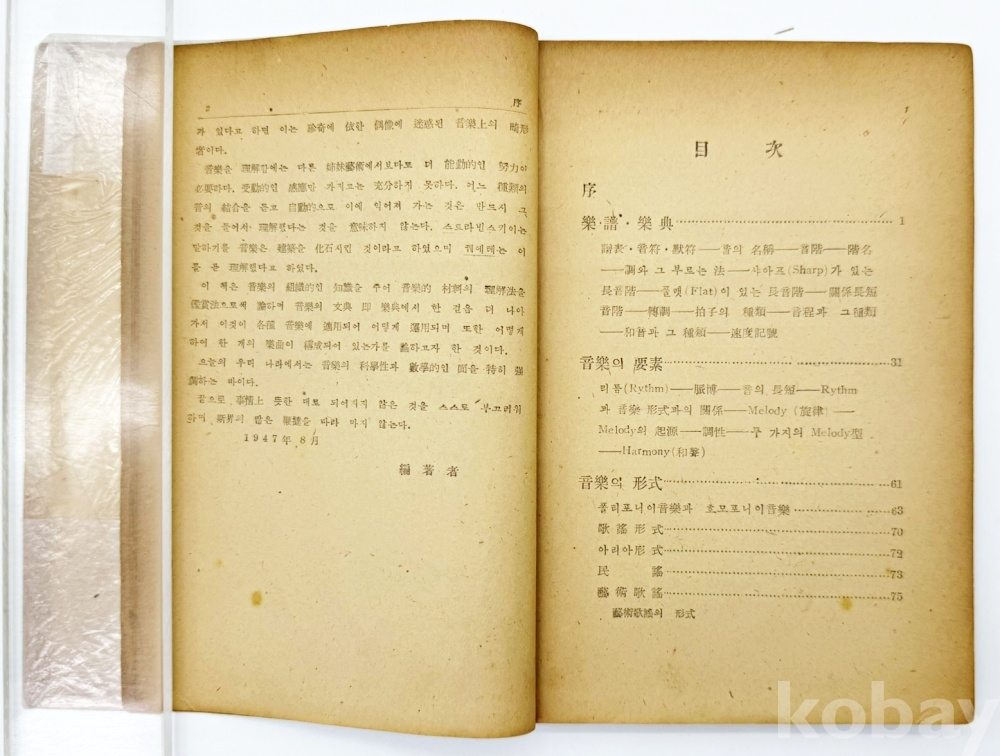 2 序
가 있다고 하면 이는 珍奇에 依한 偶像에 迷惑된 音樂上의 畸形
者이다.
音樂을 理解함에는 다른 姉妹藝術에서보다도 더 能動的인 努力이
必要하다. 受動的인 感應만 가지고는 充分하지 못하다. 어느 種類의
音의 結合을 듣고 自動的으로 이에 익어져 가는 것은 반드시 그
것을 들어서 理解했다는 것을 意味하지 않는다. 스트라빈스키이는
말하기를 音樂은 建築을 化石처럼 것이라고 하였으며 꾀에테는 이
를 른 理解했다고 하였다.
이 책은 音樂의 組織的인 知識을 주어 音樂的 材料의 理解法을
鑑賞法으로써 論하며 音樂의 文典 即 樂典에서 한 걸음 더 나아
가서 이것이 各種 音樂에 適用되어 어떻게 運用되며 또한 어떻게
하여 한 개의 樂曲이 構成되어 있는가를 論하고자 한 것이다.
오늘의 우리 나라에서는 音樂의 科學性과 數學的인 面을 特히 强
調하는 바이다.
끝으로 事情上 뜻한 대로 되어지지 않은 것을 스스로 부끄러워
하며 斯界의 많은 鞭撻을 바라 마지 않는다.
1947年 8月
編著者
1
目 次
序
樂·譜·樂典 1
譜表·音符·默符──音의 名稱──音階──階名
──調와 그 부르는 法──샤아프(Sharp)가 있는
長音階──플랫(Flat)이 있는 長音階──關係長短
音階──轉調──拍子의 種類──音程과 그 種類
──和音과 그 種類──速度記號
音樂의 要素 31
리듬(Rythm)──脈博──音의 長短──Rythm
과 音樂 形式과의 關係──Melody (旋律)──
Melody의 起源──調性──두 가지의 Melody型
──Harmony(和聲)
音樂의 形式 61
폴리포니이音樂과 호모포니이音樂 63
歌謠形式 70
아리아形式 72
民 謠 73
藝術歌謠 75
藝術歌謠의 形式
kobay